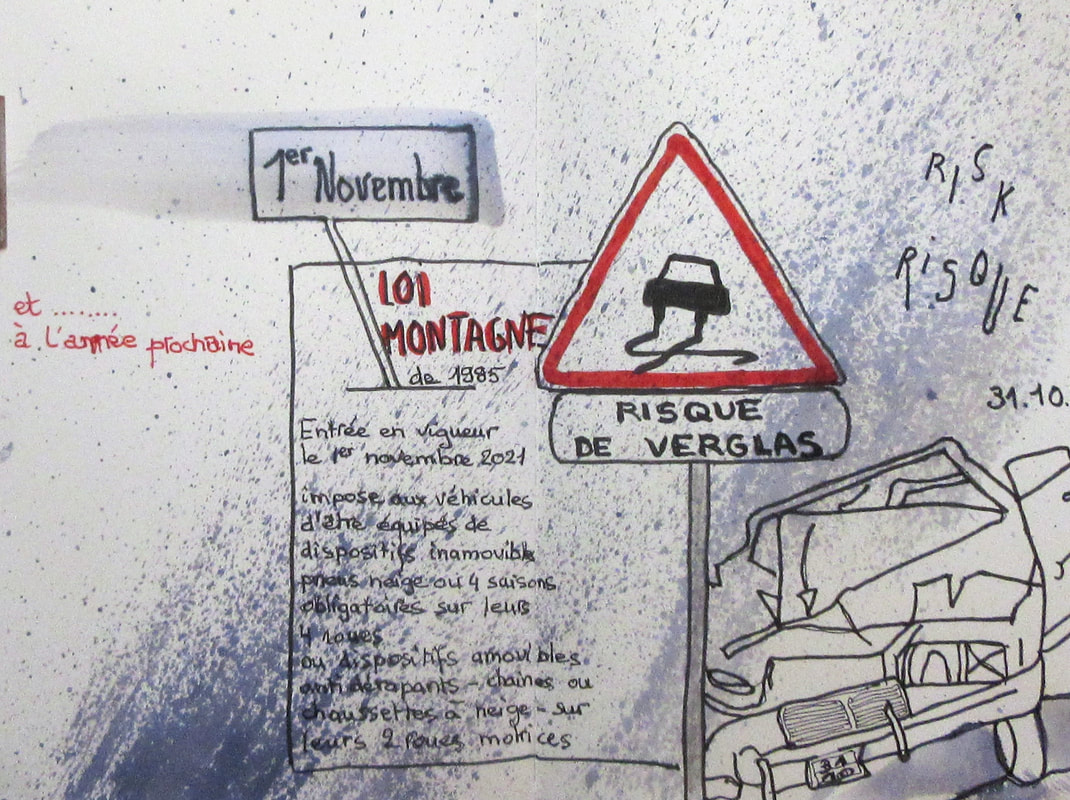 1er Novembre
et ........
à l'année prochaine
LOI
MONTAGNE
de 1985
Entrée en vigueur
le 1er novembre 2021
impose aux véhicules
d'être équipés de
dispositifs inamovibles
pneus neige ou 4 saisons
obligatoires sur leurs
4 roues
ou dispositifs amovibles
anti dérapants - chaînes ou
chaussettes à neige - sur
leurs 2 roues motrices
RISQUE
DE VERGLAS
RISK
RiSQUE
31.10.
31
10